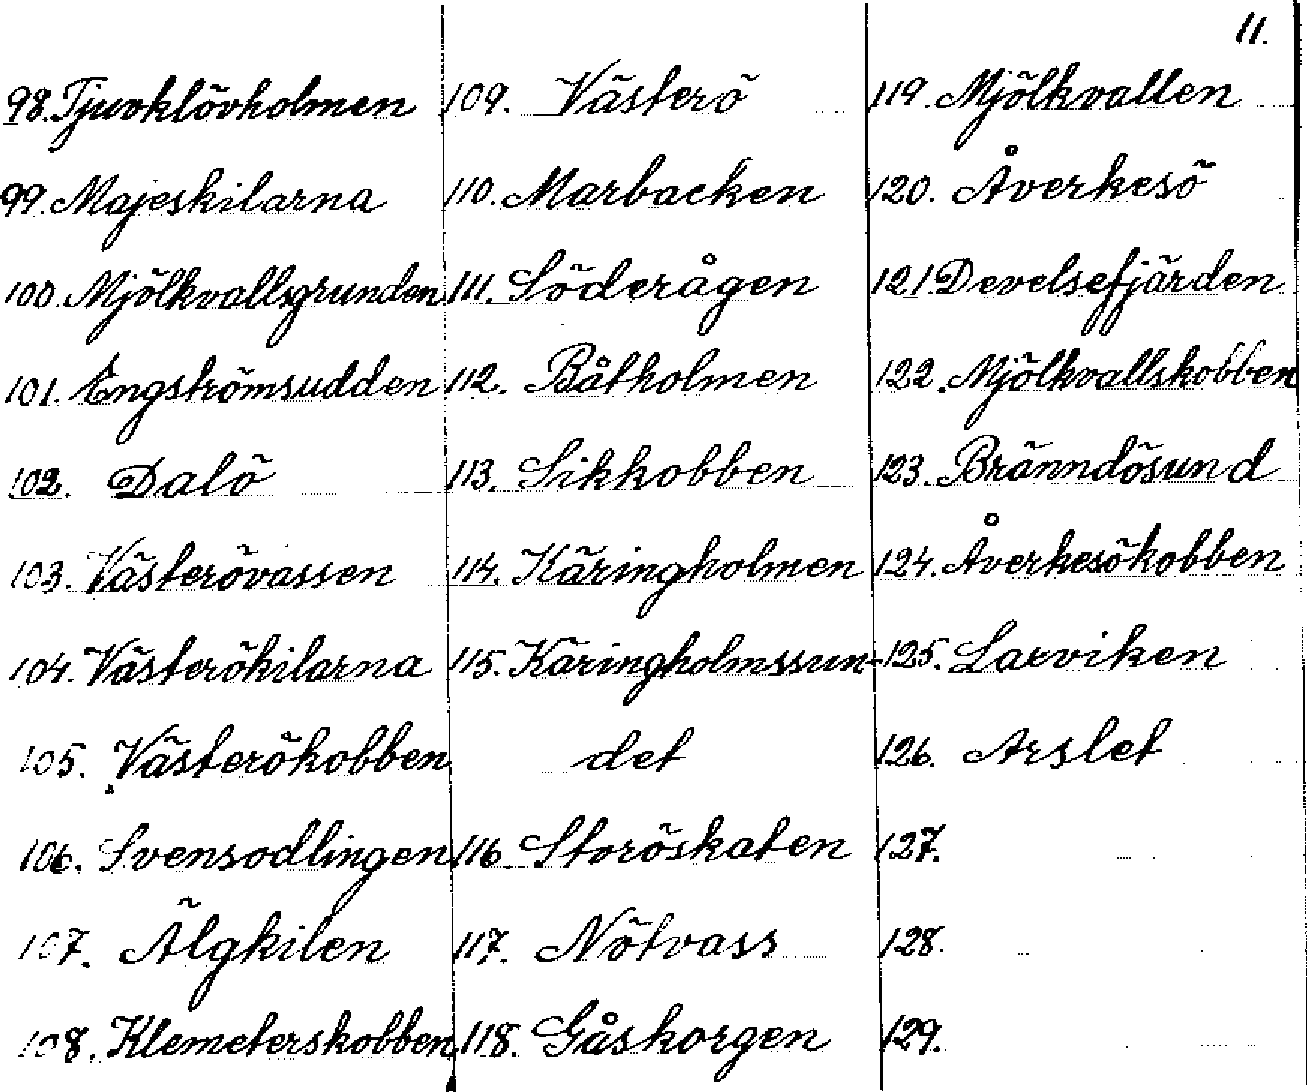 11.
98. Tjuvklövholmen
99. Majeskilarna
100. Mjölkvallsgrunden
101. Engströmsudden
102. Dalö
103. Västerövassen
104. Västerökilarna
105. Västerökobben
106. Svensodlingen
107. Älgkilen
108. Klemeterskobben
109. Västerö
110. Marbacken
111. Söderågen
112. Båtholmen
113. Sikkobben
114. Käringholmen
115. Käringholmssun-
det
116. Storöskaten
117. Nötvass
118. Gåskorgen
119. Mjölkvallen
120. Åverkesö
121. Develsefjärden
122. Mjölkvallskobben
123. Bränndösund
124. Åverkesökobben
125. Larviken
126. Arslet
127.
128.
129.